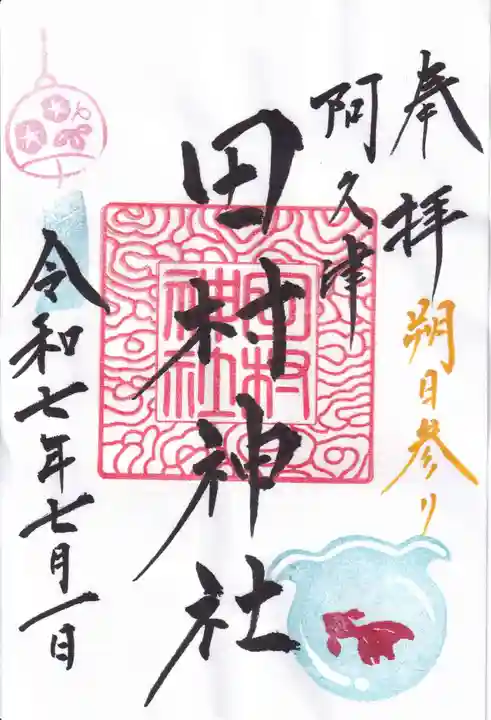 奉拝
朔日参り
阿久津
田村神社
田村
神社
令和七年七月一日